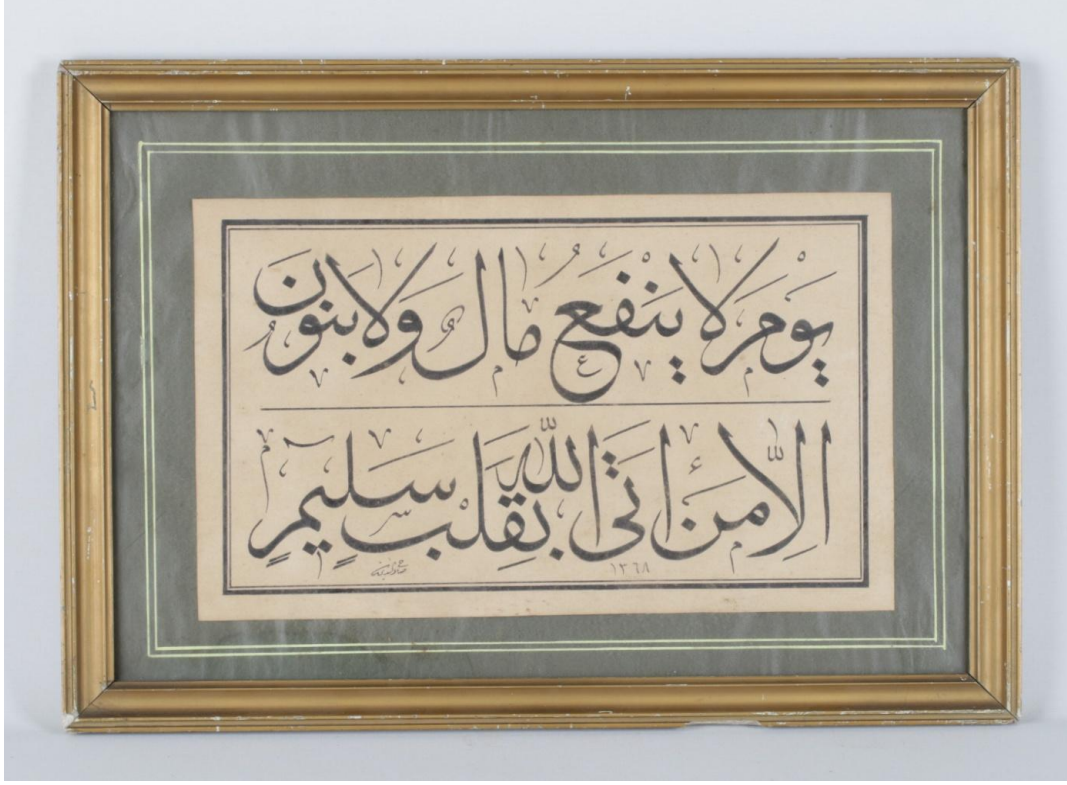 يَوْمَ لَا يَنْفَعُ مَالٌ وَلَا بَنُونَ
اِلَّا مَنْ اَتَى اللّٰهَ بِقَلْبٍ سَلِيمٍ
١٣٦٨